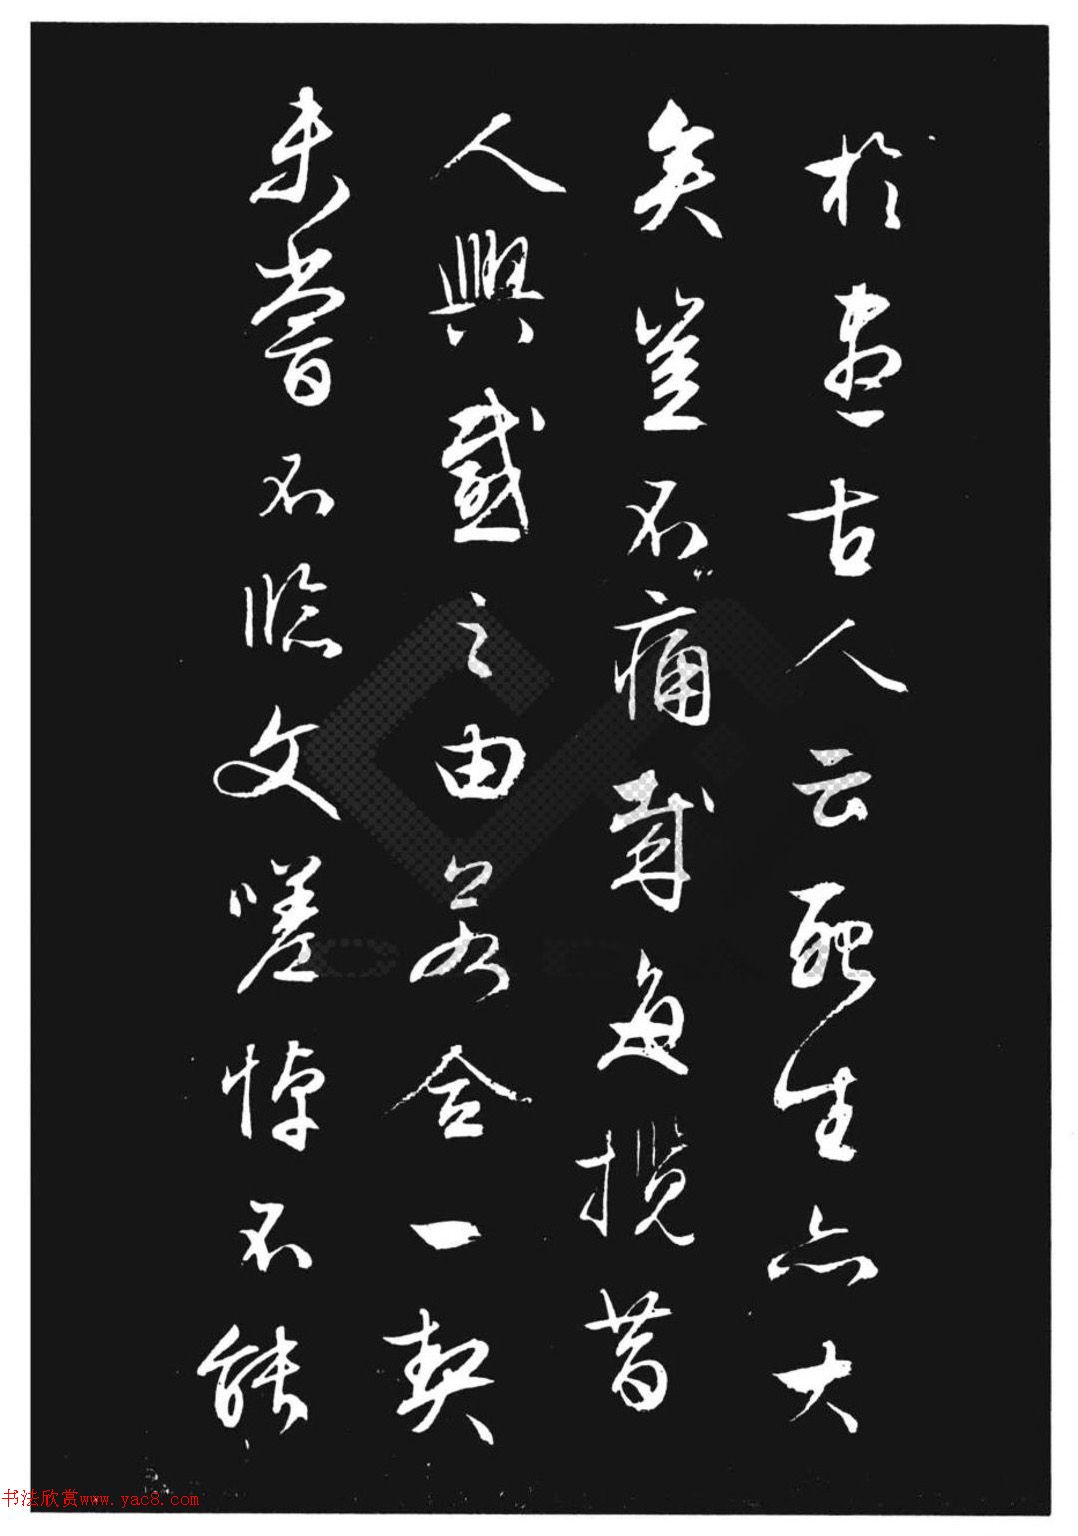 於盡古人云死生亦大
矣豈不痛哉每攬昔
人興感之由若合一契
未嘗不臨文嗟悼不能
书法欣赏www.yac8.com